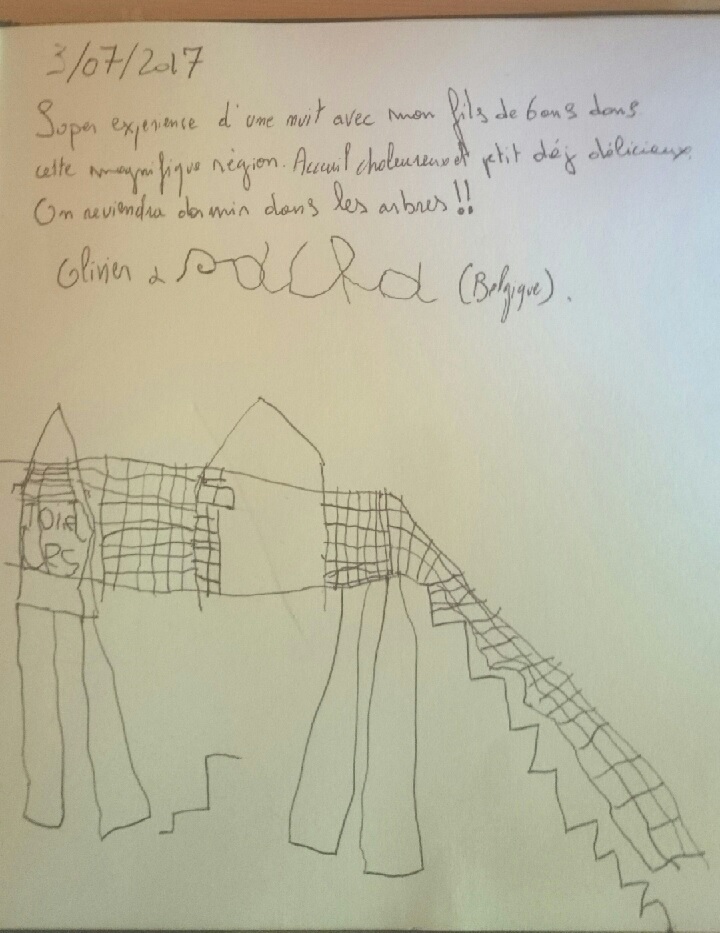 3/07/2017
Super experience d'une nuit avec mon fils de 6 ans dans
cette magnifique région. Accueil chaleureux et ptit déj délicieux.
On reviendra dormir dans les arbres !!
Olivier & sacha (Belgique).
TOIL